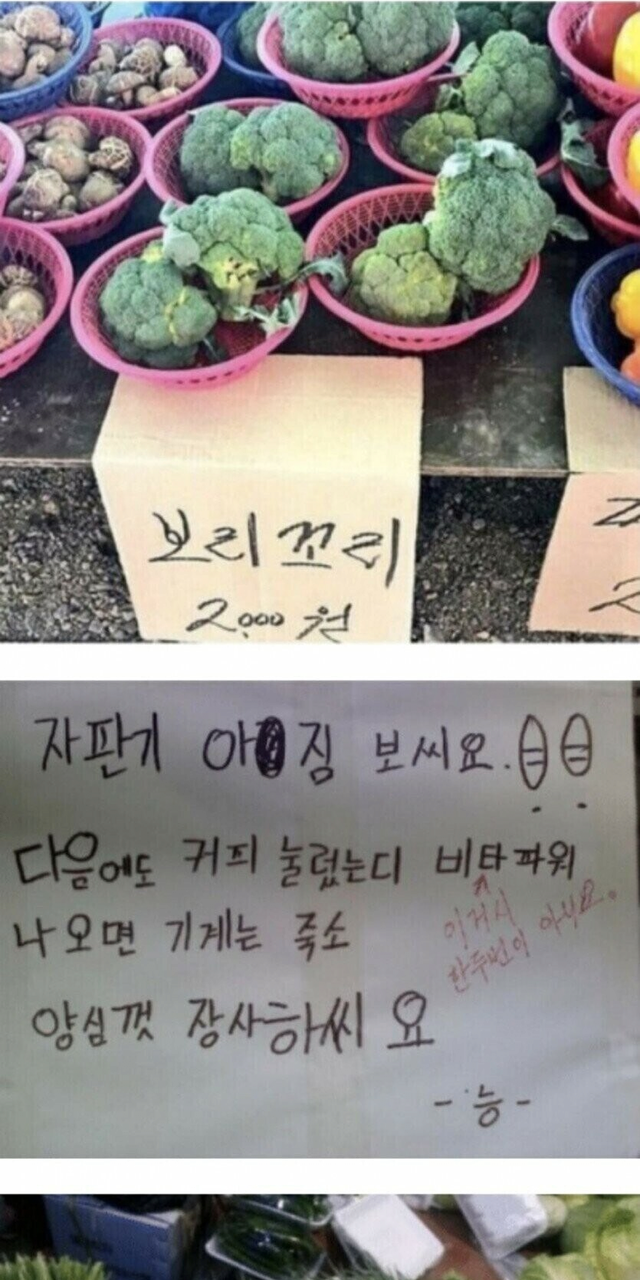 보리꼬리
2,000원
자판기 아짐 보씨요.
다음에도 커피 눌렀는디 비타파워
나오면 기계는 죽소
이거시
한두번이 아녀요.
양심껏 장사하씨요
-능-